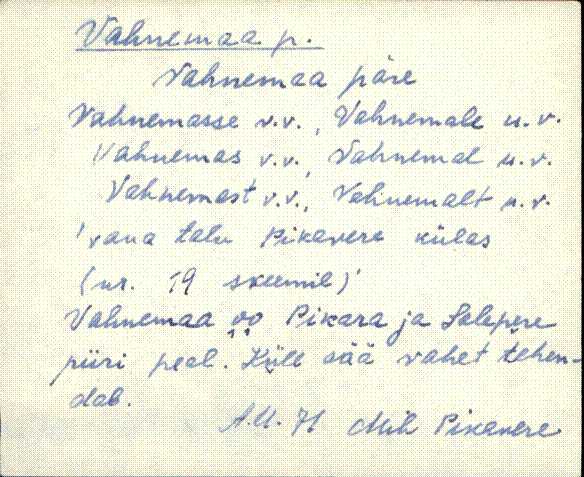 Vahnemaa p.
Vahnemaa päre
Vahnemasse v.v., Vahnemale u.v.
Vahnemas v.v., Vahnemal u.v.
Vahnemast v.v., Vahnemalt u.v.
'vana talu Pikavere külas
(nr. 19 skeemil)'
Vahnemaa oo Pikara ja Salepere
piiri peal. Küll sää vahet tehen-
dab.
A.U. 71 Mih Pikavere